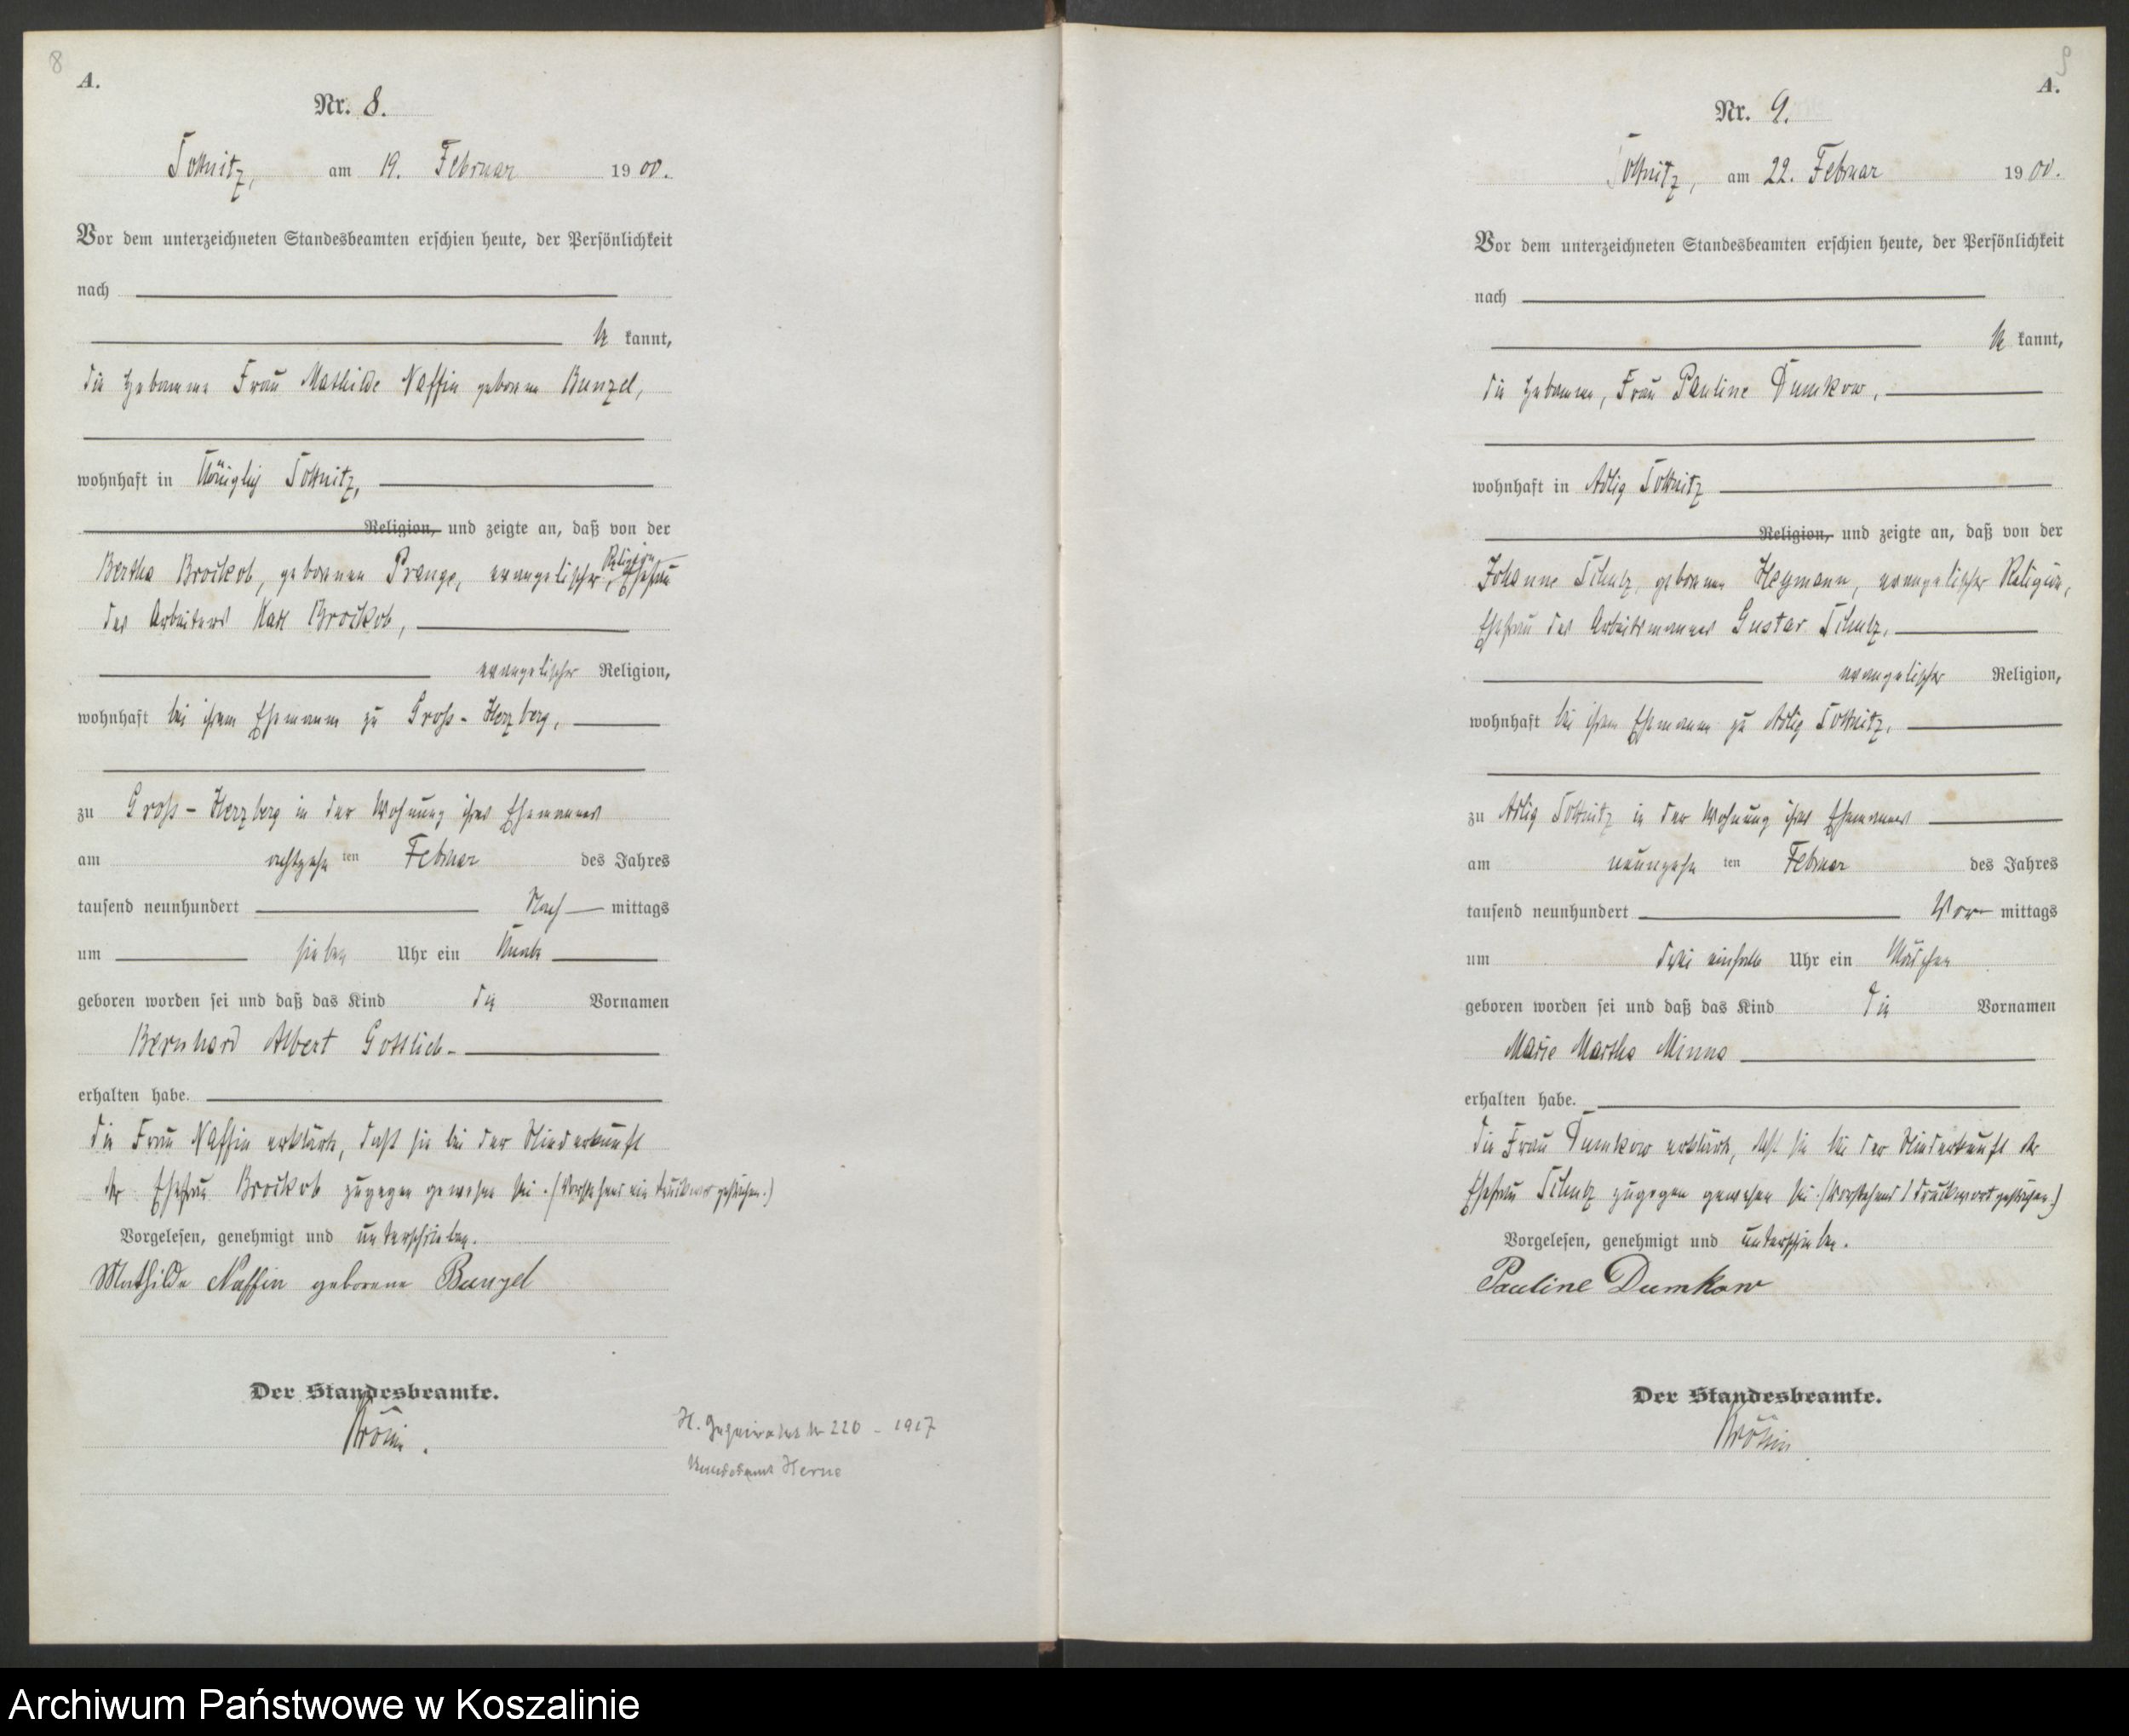 8
A.
Nr. 8.
Sottnitz, am 19. Februar 1900.
Vor dem unterzeichneten Standesbeamten erschien heute, der Persönlichkeit
nach
be kannt,
die Hebamme Frau Mathilde Naffin geborene Bunzel,
wohnhaft in Königlich Sottnitz,
Religion, und zeigte an, daß von der
Bertha Brockob, geborenen Prange, evangelischer Religion, Ehefrau
des Arbeiters Karl Brockob,
evangelischer Religion,
wohnhaft bei ihrem Ehemanne zu Groß-Herzberg,
zu Groß-Herzberg in der Wohnung ihres Ehemannes
am achtzehn ten Februar des Jahres
tausend neunhundert Nach mittags
um sieben Uhr ein Knabe
geboren worden sei und daß das Kind die Vornamen
Bernhard Albert Gottlieb
erhalten habe.
Die Frau Naffin erklärte, daß sie bei der Niederkunft
der Ehefrau Brockob zugegen gewesen sei. (Vorstehend ein Druckwort gestrichen.)
Vorgelesen, genehmigt und unterschrieben.
Mathilde Naffin geborene Bunzel
Der Standesbeamte.
H. Geheiratet Nr 220 - 1917
Standesamt Herne
9
A.
Nr. 9.
Sottnitz, am 22. Februar 1900.
Vor dem unterzeichneten Standesbeamten erschien heute, der Persönlichkeit
nach
be kannt,
die Hebamme, Frau Pauline Dumkow,
wohnhaft in Adlig Sottnitz
Religion, und zeigte an, daß von der
Johanne Schulz, geborenen Heymann, evangelischer Religion,
Ehefrau des Arbeitsmannes Gustav Schulz,
evangelischer Religion,
wohnhaft bei ihrem Ehemanne zu Adlig Sottnitz,
zu Adlig Sottnitz in der Wohnung ihres Ehemannes
am neunzehn ten Februar des Jahres
tausend neunhundert Vor mittags
um drei einhalb Uhr ein Mädchen
geboren worden sei und daß das Kind die Vornamen
Marie Martha Minna
erhalten habe.
Die Frau Dumkow erklärte, daß sie bei der Niederkunft der
Ehefrau Schulz zugegen gewesen sei. (Vorstehend 1 Druckwort gestrichen.)
Vorgelesen, genehmigt und unterschrieben.
Pauline Dumkow
Der Standesbeamte.
Archiwum Państwowe w Koszalinie